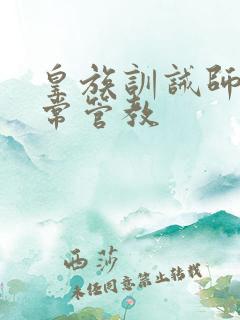 皇族訓誡師
常管教
西莎
未经同意禁止转载